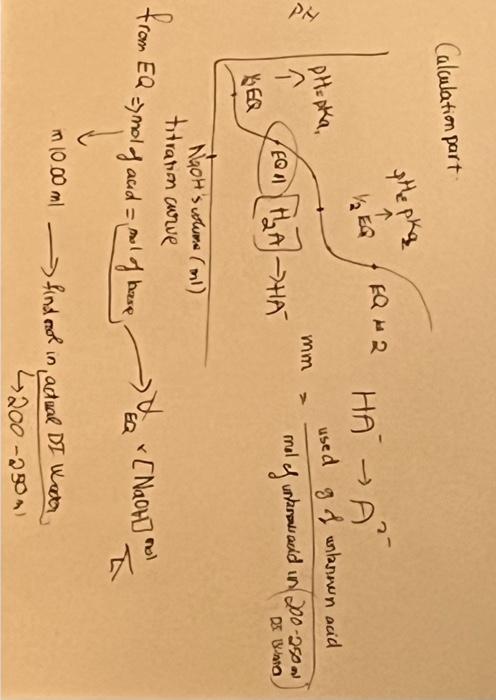 Calculation part
PH
pH = pKa2
↑
1/2 EQ
EQ # 2
HA⁻ → A²⁻
pH = pKa1
↑
1/2 EQ
EQ #1
H2A → HA⁻
mm = used g of unknown acid
mol of unknown acid in (200-250 ml
DI Water)
NaOH's volume (ml)
titration curve
from EQ ⇒ mol of acid = mol of base → V EQ × [NaOH] mol
L
in 10.00 ml → find mol in actual DI Water
↳ 200-250 ml